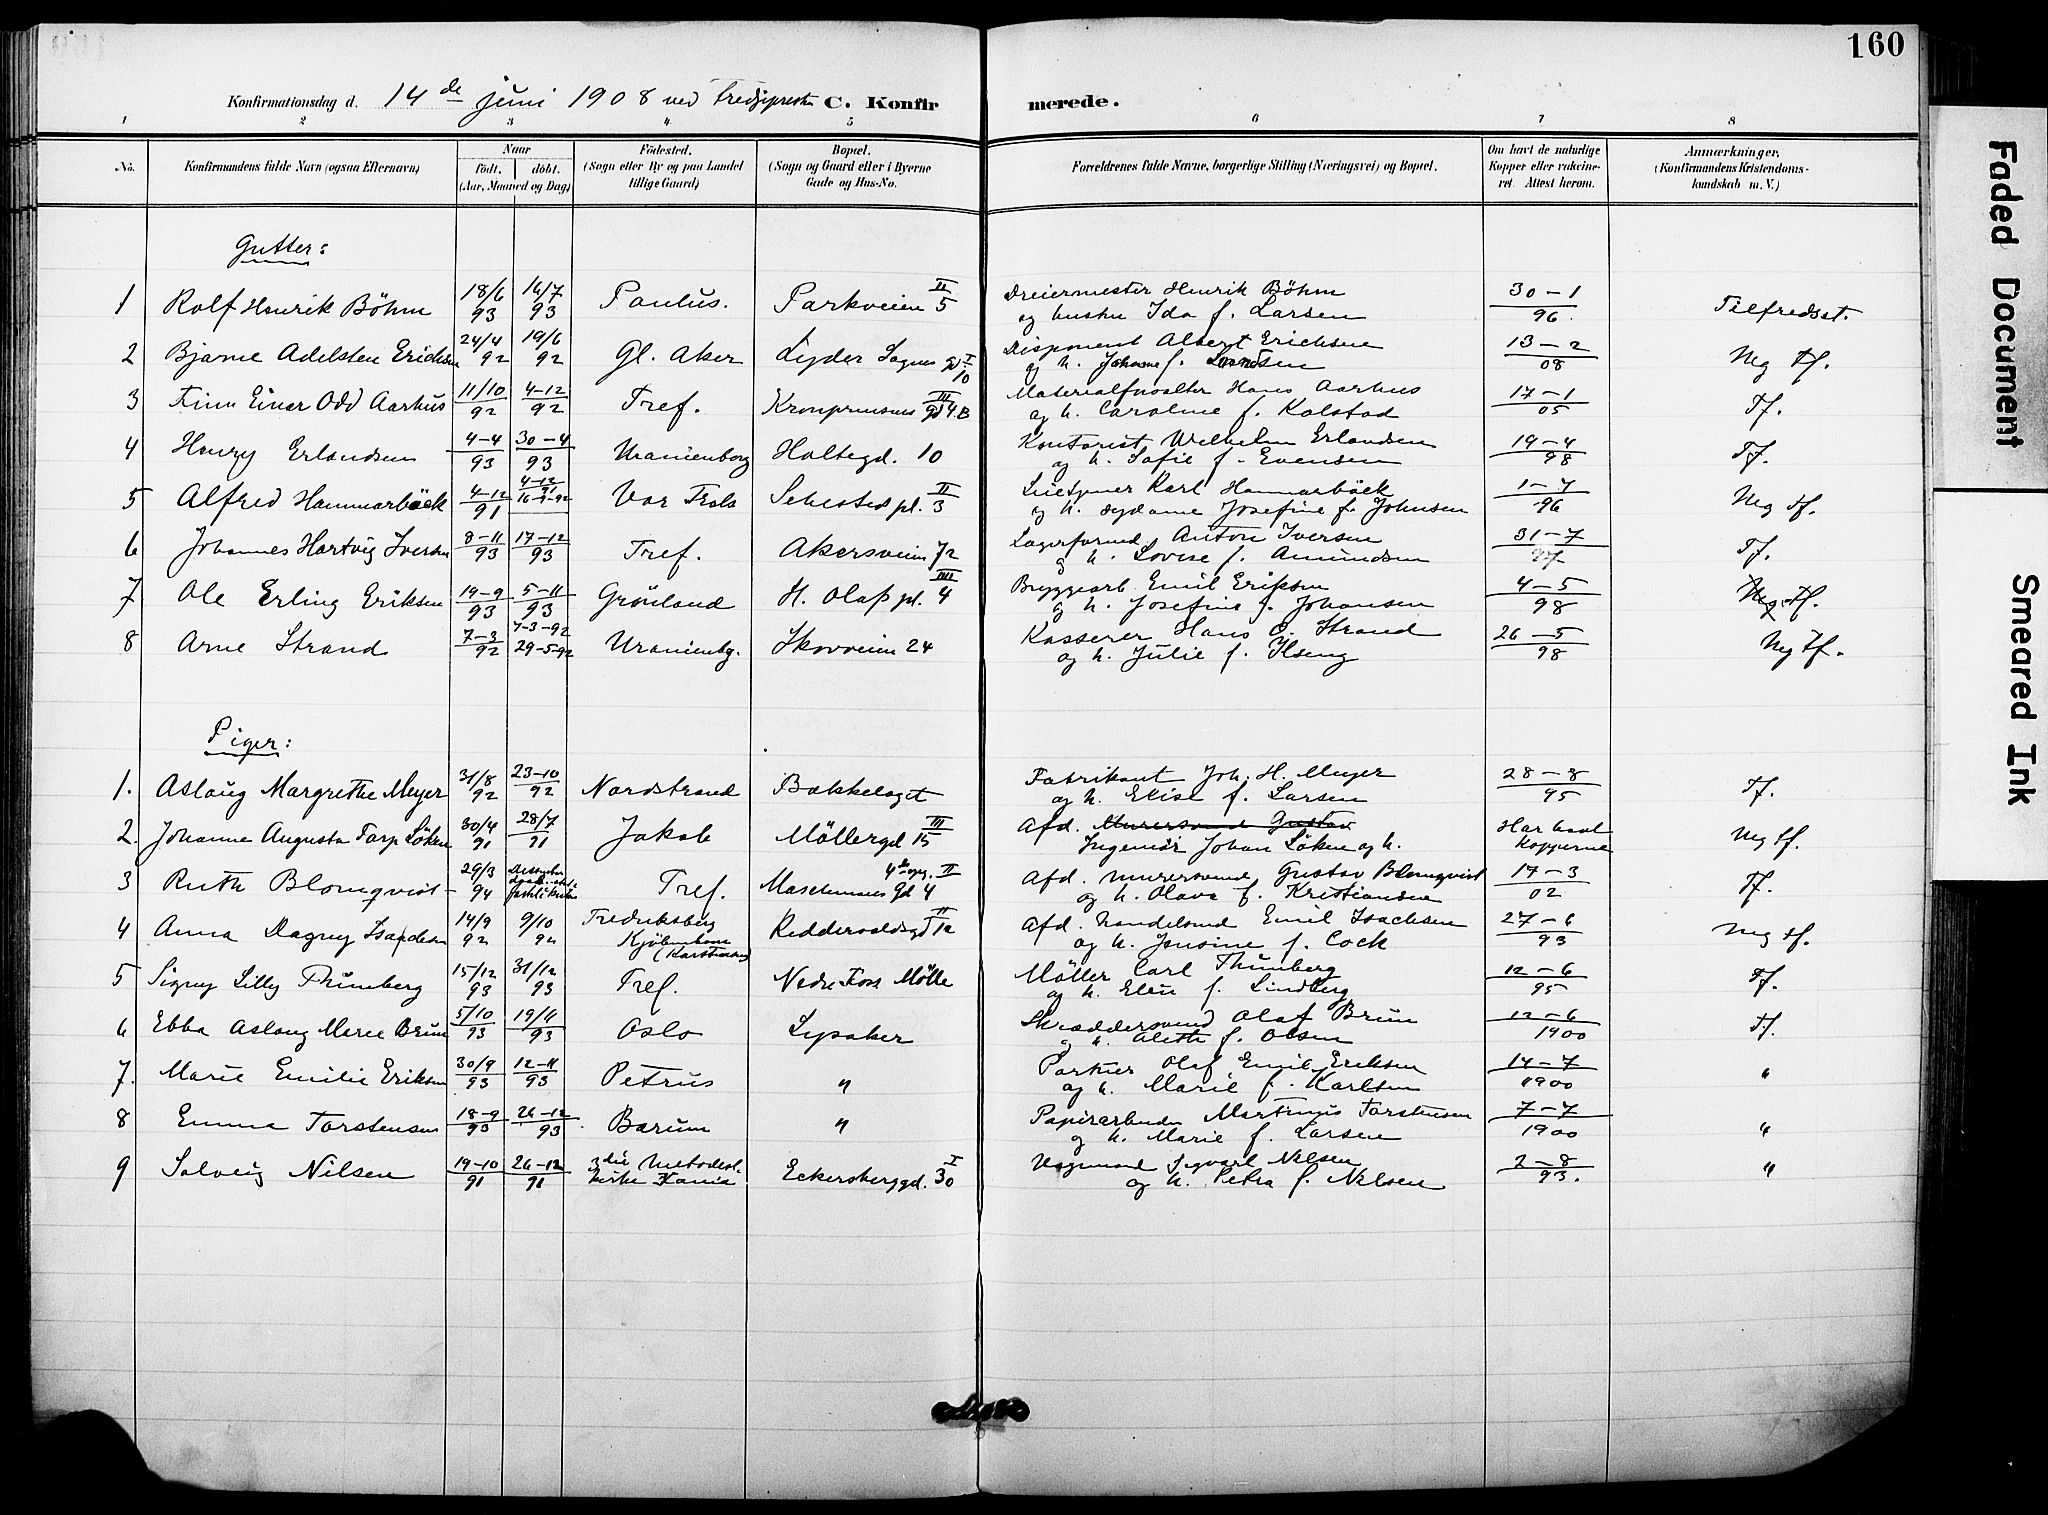 160
Konfirmationsdag d. 14de juni 1908 ved Tredjeprester C. Konfirmerede.
1 2 3 4 5 6 7 8
No. Konfirmandens fulde Navn (ogsaa Efternavn) Naar födt. döbt. (Aar, Maaned og Dag) Födested. (Sogn eller By og paa Landet tillige Gaard) Bopæl. (Sogn og Gaard eller i Byerne Gade og Hus-No. Forældrenes fulde Navne, borgerlige Stilling (Næringsvei) og Bopæl. Om havt de naturlige Kopper eller vakcineret. Attest herom. Anmærkninger. (Konfirmandens Kristendomskundskab m. V.)
Gutter:
1 Rolf Henrik Böhm 18/6 93 16/7 93 Paulus. Parkveien 5 II Dreiermester Henrik Böhm og hustru Ida f. Larsen 30-1 96 Tilfredsst.
2 Bjarne Adelsten Erichsen 24/4 92 19/6 92 Gl. Aker Lyder Sagens gd 10 I Disponent Albert Erichsen og h. Johanne f. 13-2 08 Meg tf.
3 Finn Einar Odd Aarhus 11/10 92 4-12 92 Tref. Kronprinsens gd 4B III Materialforvalter Hans Aarhus og h. Caroline f. Kolstad 17-1 05 Tf.
4 Henry Erlandsen 4-4 93 30-4 93 Uranienborg Holtegd. 10 Kontorist Wilhelm Erlandsen og h. Sofie f. Evensen 19-4 98 Tf.
5 Alfred Hammarbäck 4-12 91 4-12 91 16-9-92 Vor Frels Sehesteds pl. 3 II Karl Hammarbäck og h. Josefine f. Johnsen 1-7 96 Meg tf.
6 Johannes Hartvig Iversen 8-11 93 17-12 93 Tref. Akersveien 72 Lagerformd. Anton Iversen og h. Lovise f. Amundsen 31-7 97 Tf.
7 Ole Erling Eriksen 19-9 93 5-11 93 Grönland H. Olafs pl. 4 IIII Bryggearb. Emil Eriksen og h. Josefine f. Johansen 4-5 98 Meg. tf.
8 Arne Strand 7-3 92 7-3-92 29-5-92 Uranienbg. Skovveien 24 Kasserer Hans O. Strand og h. Julie f. Ilseng 26-5 98 Meg tf.
Piger:
1. Aslaug Margrethe Meyer 31/8 92 23-10 92 Nordstrand Bækkelaget Fabrikant Joh. H. Meyer og h. Elise f. Larsen 28-8 95 Tf.
2. Johanne Augusta Tarp Löken 30/4 91 28/7 91 Jakob Möllergd 15 III Afd. Murersvend Gustav Ingeniör Johan Löken og h. Har havt kopperne Meg tf.
3 Ruth Blomqvist 29/3 94 Tref. Maschinens Gd 4 II Afd. murersvend Gustav Blomqvist og h. Olava f. Kristiansen 17-3 02 Tf.
4 Anna Dagny Isachsen 14/9 92 9/10 92 Fredriksberg Kjöbenhavn Reddervoldsgd 12 II Afd. handelsmd Emil Isachsen og h. Jensine f. Cock 27-6 93 Meg tf.
5 Signy Lilly Thunberg 15/12 93 31/12 93 Tref. Nedre Foss Mölle Möller Carl Thunberg og h. Elin f. Lindberg 12-6 95 Tf.
6 Ebba Aslaug Marie Brun 5/10 93 19/11 93 Oslo Lysaker Skræddersvend Olaf Brun og h. Alette f. Olsen 12-6 1900 Tf.
7. Marie Emilie Eriksen 30/9 93 12-11 93 Petrus " Olaf Emil Eriksen og h. Marie f. Karlsen 14-7 1900 "
8 Emma Torstensen 18-9 93 26-12 93 Bærum " Papirarbeider Martinius Torstensen og h. Marie f. Larsen 7-7 1900 "
9 Solveig Nilsen 19-10 91 26-12 91 2den Metodistkirke Kania Eckersberggd. 30 I Vognmand Sigvart Nilsen og h. Petra f. Nilsen 2-8 93. "
Faded Document
Smeared Ink